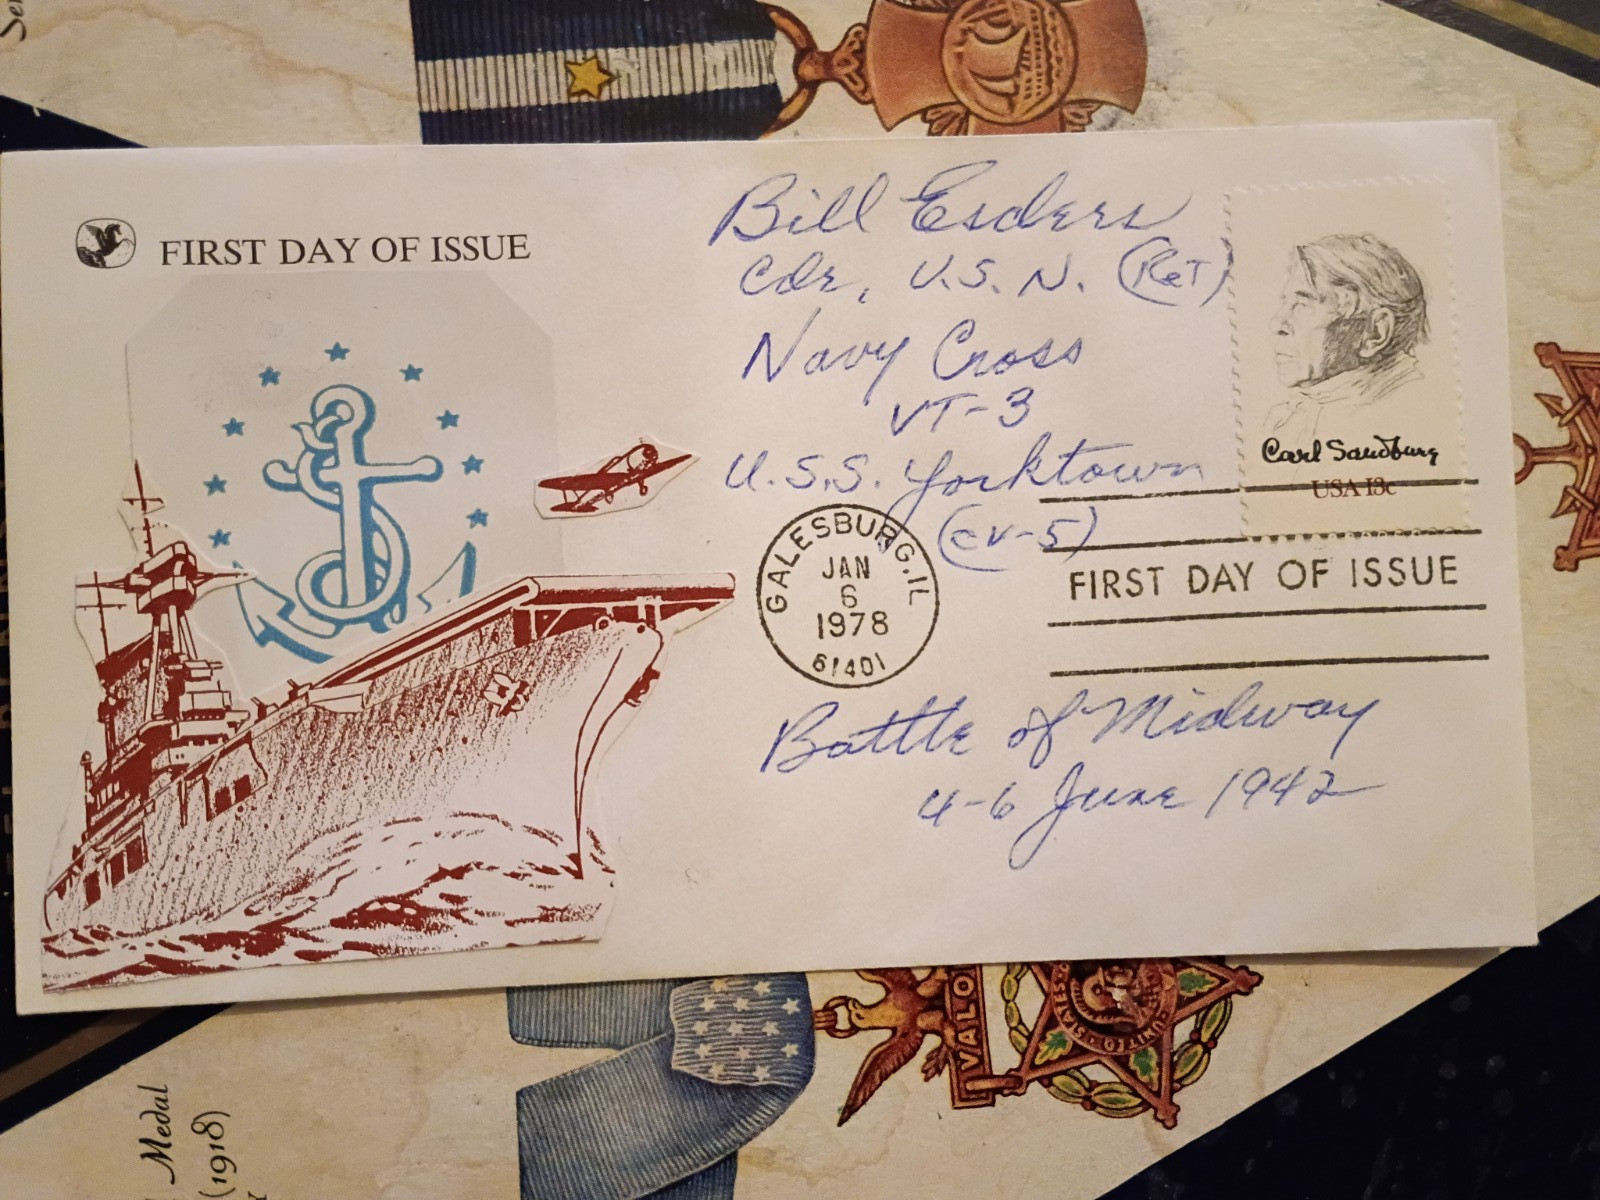 FIRST DAY OF ISSUE
Bill Esders
Cdr, U.S. N. (Ret)
Navy Cross
VT-3
U.S.S. Yorktown
(CV-5)
Carl Sandburg
USA 13c
GALESBURG, IL
JAN
6
1978
61401
FIRST DAY OF ISSUE
Battle of Midway
4-6 June 1942
VALO
UNITED STATES
Medal
(1918)